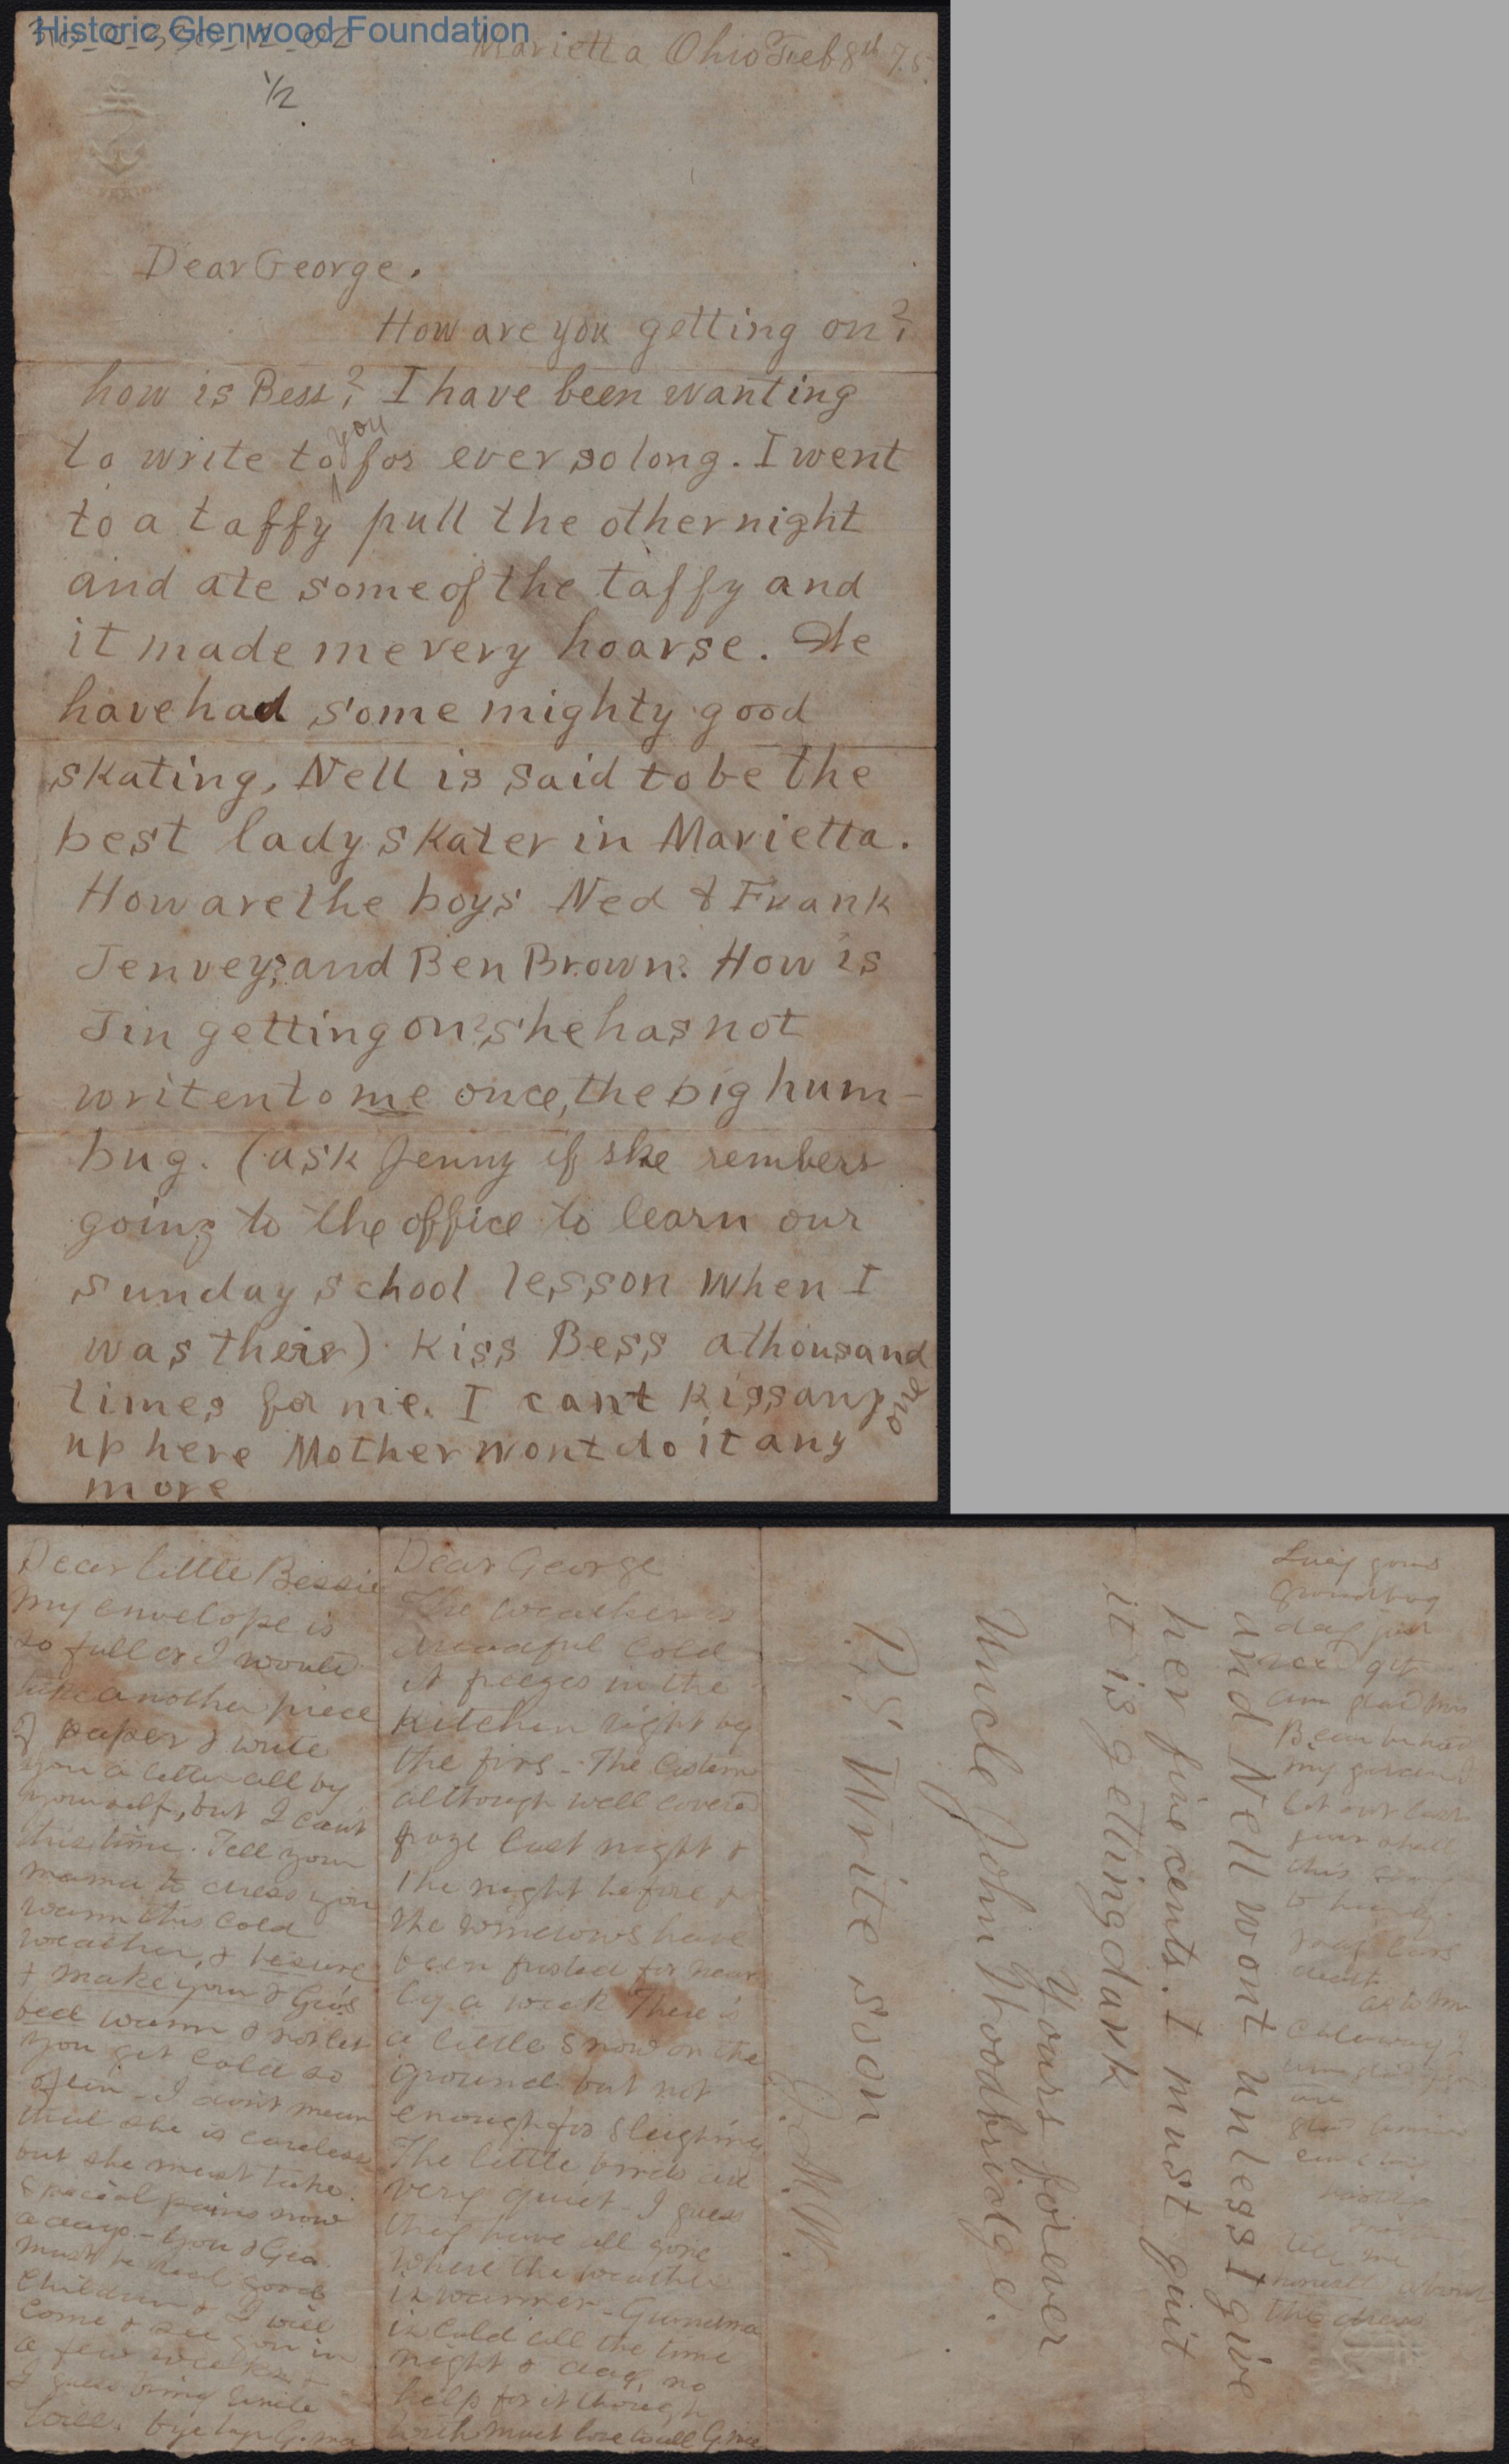 Historic Glenwood Foundation
Marietta Ohio Feb 8th 75.
1/2
Dear George.
How are you getting on?
how is Bess? I have been wanting
to write to you for ever so long. I went
to a taffy pull the other night
and ate some of the taffy and
it made me very hoarse. We
have had some mighty good
skating, Nell is said to be the
best lady skater in Marietta.
How are the boys Ned & Frank
Jenvey? and Ben Brown? How is
Jin getting on? she has not
writen to me once, the big hum-
bug. (ask Jenny if she rembers
going to the office to learn our
sunday school lesson when I
was their) Kiss Bess a thousand
times for me. I cant kiss any one
up here Mother wont do it any
more
and Nell wont unless I give
her five cents. I must quit
it is getting dark
Yours forever
Uncle John Woodbridge.
P.S. Write soon
J. M. W.
Dear George
The weather is
dreadful cold
it freezes in the
Kitchen right by
the fire - The Cistern
although well covered
froze last night &
the night before &
the windows have
been frosted for near
ly a week There is
a little snow on the
ground but not
enough for sleighing
The little birds are
very quiet - I guess
they have all gone
where the weather
is warmer - Grandma
is cold all the time
night & day, no
help for it though
with much love to all G.ma
Dear little Bessie
my envelope is
so full or I would
take another piece
of paper & write
you a letter all by
yourself, but I can't
this time. Tell your
mama to dress you
warm this cold
weather, & be sure
& make your & Geo's
bed warm & not let
you get cold so
often - I don't mean
that she is careless
but she must take
special pains now
a days - You & Geo.
must be real good
children & I will
come & see you in
a few weeks &
I guess bring Uncle
Will. bye bye G.ma
groundhog
day
am glad
my
last
this
to
Tell me
about
the dress